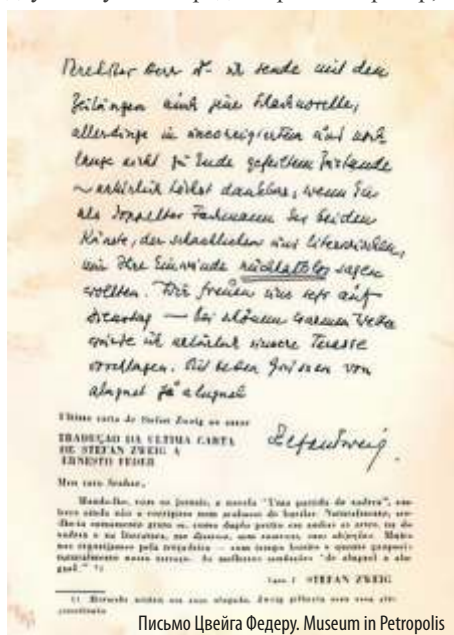 Verehrter Herr Dr. ich sende mit den
Zeitungen auch jene Schachnovelle,
allerdings in uncorrigiertem und noch
lange nicht zu Ende gefeiltem Zustande
– natürlich höchst dankbar, wenn Sie
als doppelter Fachmann der beiden
Künste, der schachlichen und literarischen,
mir Ihre Einwände rückhaltlos sagen
wollten. Wir freuen uns sehr auf
Dienstag — bei schönem warmen Wetter
würde ich natürlich unsere Terasse
vorschlagen. Mit besten Grüssen von
aluguel zu aluguel
Stefan Zweig.
Ultima carta de Stefan Zweig ao autor
TRADUÇÃO DA ULTIMA CARTA
DE STEFAN ZWEIG A
ERNESTO FEDER
Meu caro Senhor,
Mando-lhe, com os jornais, a novela "Uma partida de xadrez", em-
bora ainda não a corrigisse nem acabasse de burilar. Naturalmente, ser-
lhe-ia sumamente grato se, como duplo perito em ambas as artes, na do
xadrez e na literatura, me dissesse, sem reservas, suas objeções. Muito
nos regozijamos pela terça-feira — com tempo bonito e quente
naturalmente nosso terraço. As melhores saudações "de aluguel a alu-
guel."
STEFAN ZWEIG
Письмо Цвейга Федеру. Museum in Petropolis